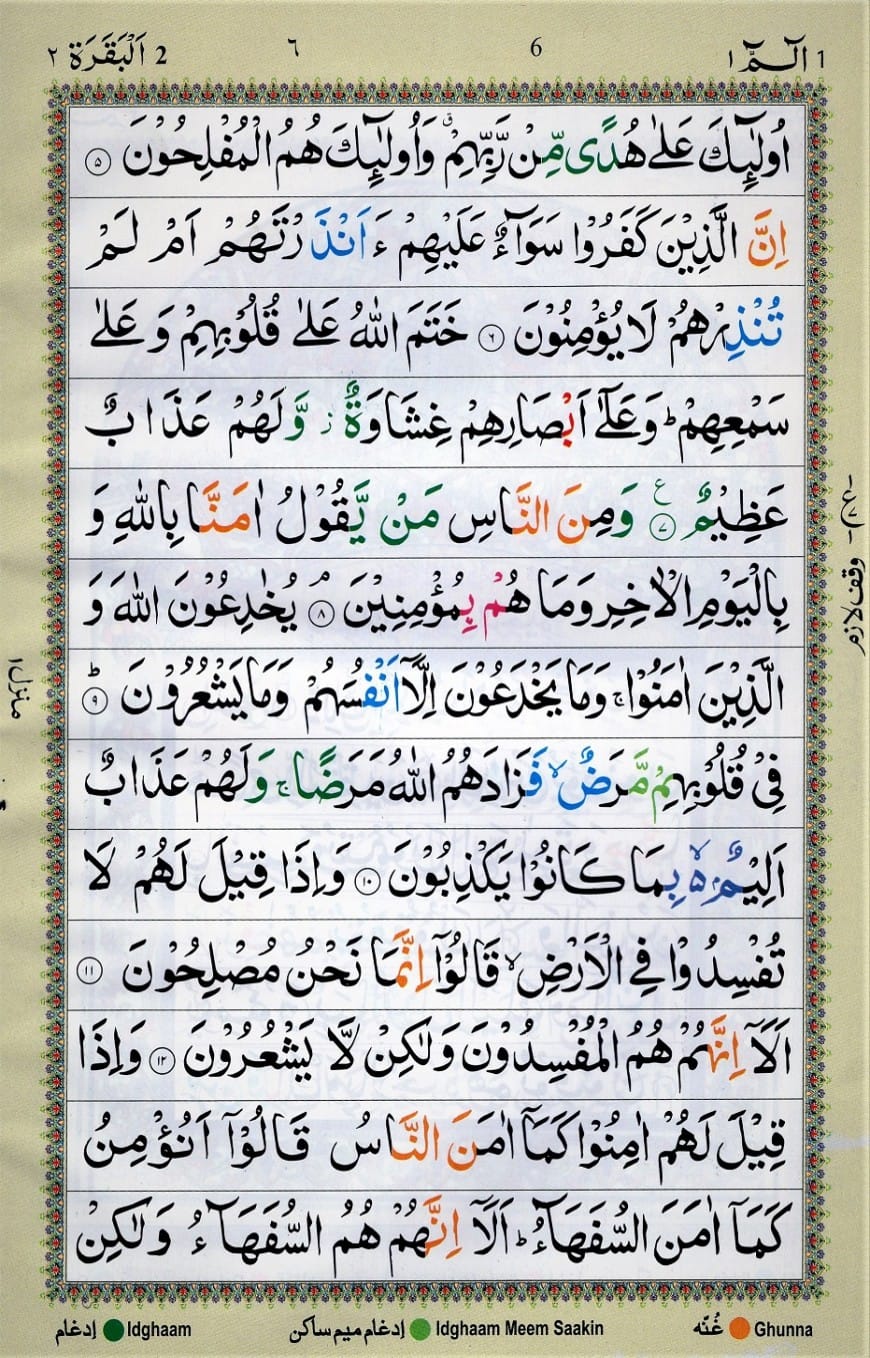 1 الٓـمّٓ ١
6
٦
2 اَلْبَقَرَة ٢
اُولٰٓئِكَ عَلٰى هُدًى مِّنْ رَّبِّهِمْ ۙ وَاُولٰٓئِكَ هُمُ الْمُفْلِحُوْنَ ۝٥
اِنَّ الَّذِيْنَ كَفَرُوْا سَوَآءٌ عَلَيْهِمْ ءَاَنْذَرْتَهُمْ اَمْ لَمْ
تُنْذِرْهُمْ لَا يُؤْمِنُوْنَ ۝٦ خَتَمَ اللّٰهُ عَلٰى قُلُوْبِهِمْ وَعَلٰى
سَمْعِهِمْ ؕ وَعَلٰٓى اَبْصَارِهِمْ غِشَاوَةٌ ز وَّلَهُمْ عَذَابٌ
عَظِيْمٌ ۝٧ ع وَمِنَ النَّاسِ مَنْ يَّقُوْلُ اٰمَنَّا بِاللّٰهِ وَ
بِالْيَوْمِ الْاٰخِرِ وَمَا هُمْ بِمُؤْمِنِيْنَ ۝٨ۘ يُخٰدِعُوْنَ اللّٰهَ وَ
الَّذِيْنَ اٰمَنُوْا ۚ وَمَا يَخْدَعُوْنَ اِلَّاۤ اَنْفُسَهُمْ وَمَا يَشْعُرُوْنَ ۝٩ؕ
فِيْ قُلُوْبِهِمْ مَّرَضٌ ۙ فَزَادَهُمُ اللّٰهُ مَرَضًا ۚ وَلَهُمْ عَذَابٌ
اَلِيْمٌ ۙ۬ۢ بِمَا كَانُوْا يَكْذِبُوْنَ ۝١٠ وَاِذَا قِيْلَ لَهُمْ لَا
تُفْسِدُوْا فِي الْاَرْضِ ۙ قَالُوْۤا اِنَّمَا نَحْنُ مُصْلِحُوْنَ ۝١١
اَلَاۤ اِنَّهُمْ هُمُ الْمُفْسِدُوْنَ وَلٰكِنْ لَّا يَشْعُرُوْنَ ۝١٢ وَاِذَا
قِيْلَ لَهُمْ اٰمِنُوْا كَمَاۤ اٰمَنَ النَّاسُ قَالُوْۤا اَنُؤْمِنُ
كَمَاۤ اٰمَنَ السُّفَهَآءُ ؕ اَلَاۤ اِنَّهُمْ هُمُ السُّفَهَآءُ وَلٰكِنْ
وقف لازم
منزل ١
Ghunna غُنّه
Idghaam Meem Saakin إدغام ميم ساكن
Idghaam إدغام